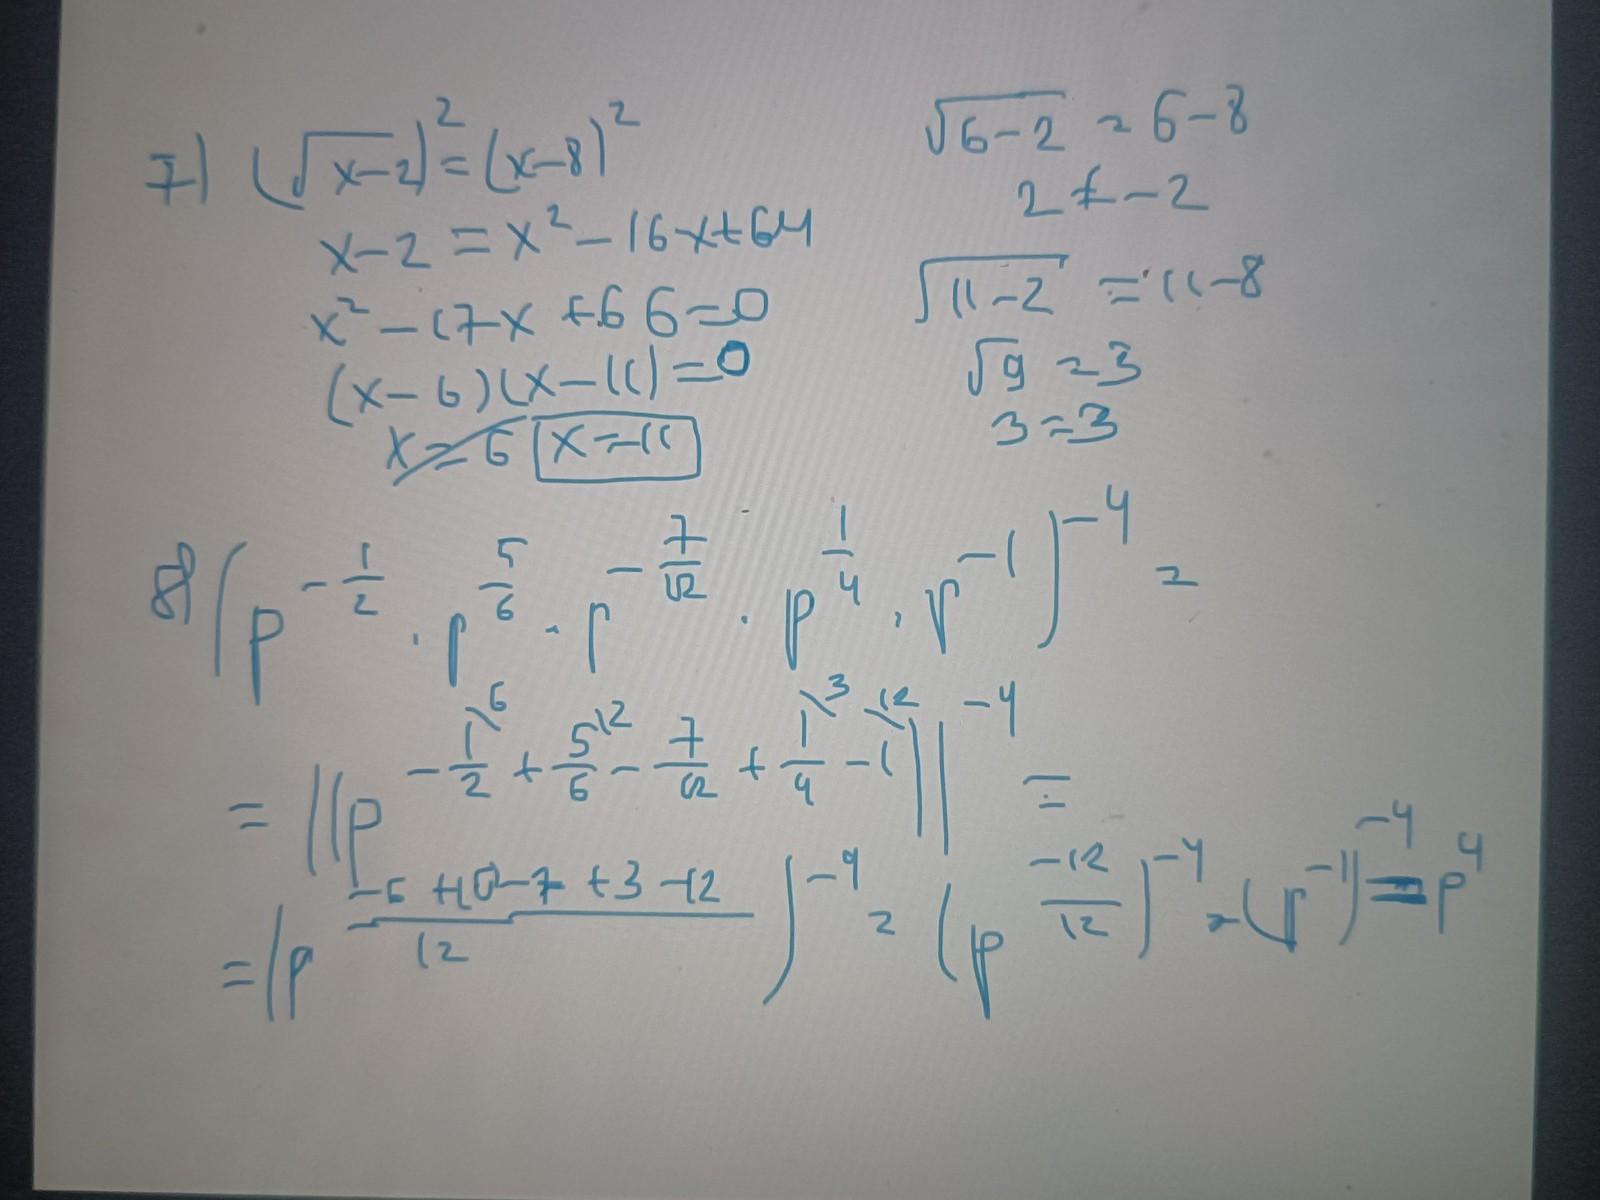 7) (√x-2)² = (x-8)²
x-2 = x² - 16x + 64
x² - 17x + 66 = 0
(x-6)(x-11) = 0
x = 6 x = 11
√6-2 = 6-8
2 ≠ -2
√11-2 = 11-8
√9 = 3
3 = 3
8) (p^(-1/2) · p^(5/6) · p^(-7/12) · p^(1/4) · p^(-1))^(-4) =
= ((p^(-1\6/2 + 5\12/6 - 7/12 + 1\3/4 - 1\12)))^(-4) =
= (p^((-6+10-7+3-12)/12))^(-4) = (p^(-12/12))^(-4) = (p^(-1))^(-4) = p^4